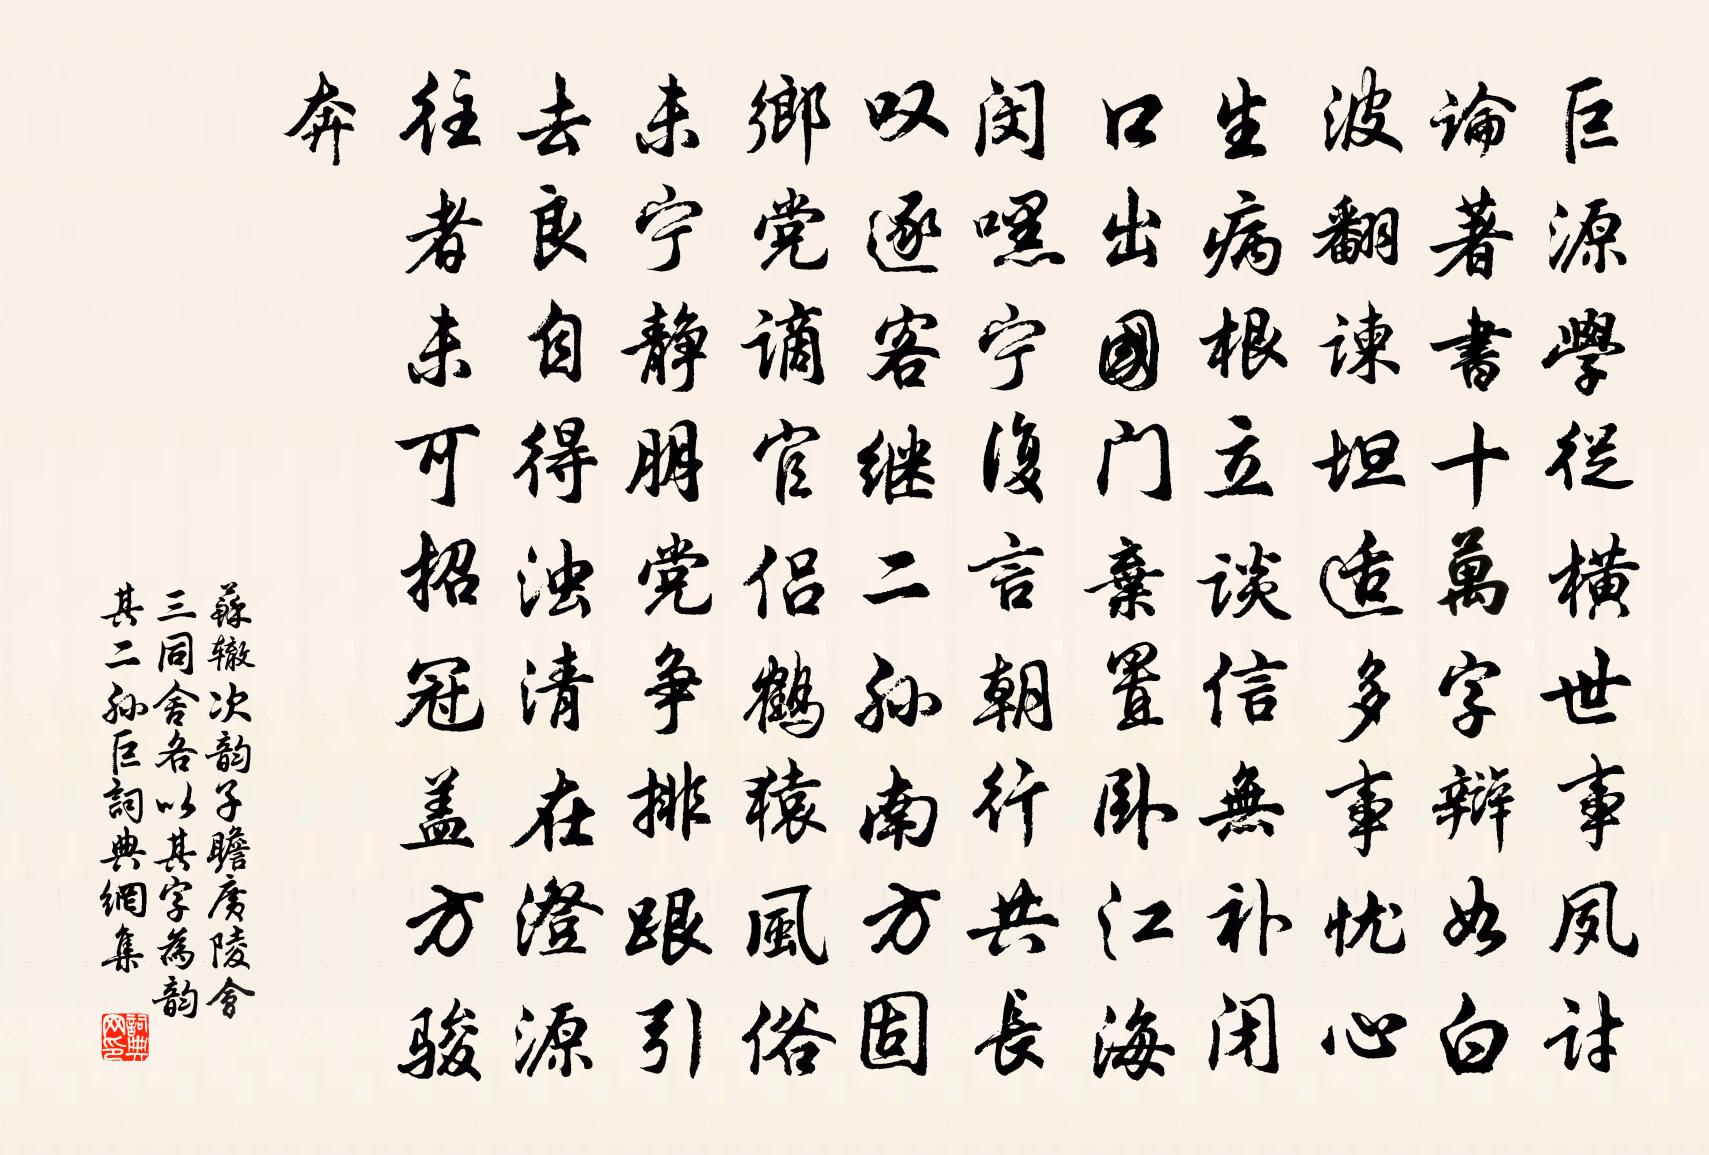 巨源學從橫世事夙討
論著書十萬字辯如白
波翻諫坦适多事忧心
生病根立談信無补闭
口出國门棄置卧江海
闵嘿宁復言朝行共長
叹逐客继二孙南方固
鄉党谪官侣鹤猿風俗
未宁靜朋党争排跟引
去良自得浊清在澄源
往者未可招冠盖方骏
奔
蘇辙次韵子瞻廣陵會
三同舍各以其字為韵
其二孙巨詞典網集
詞典网印